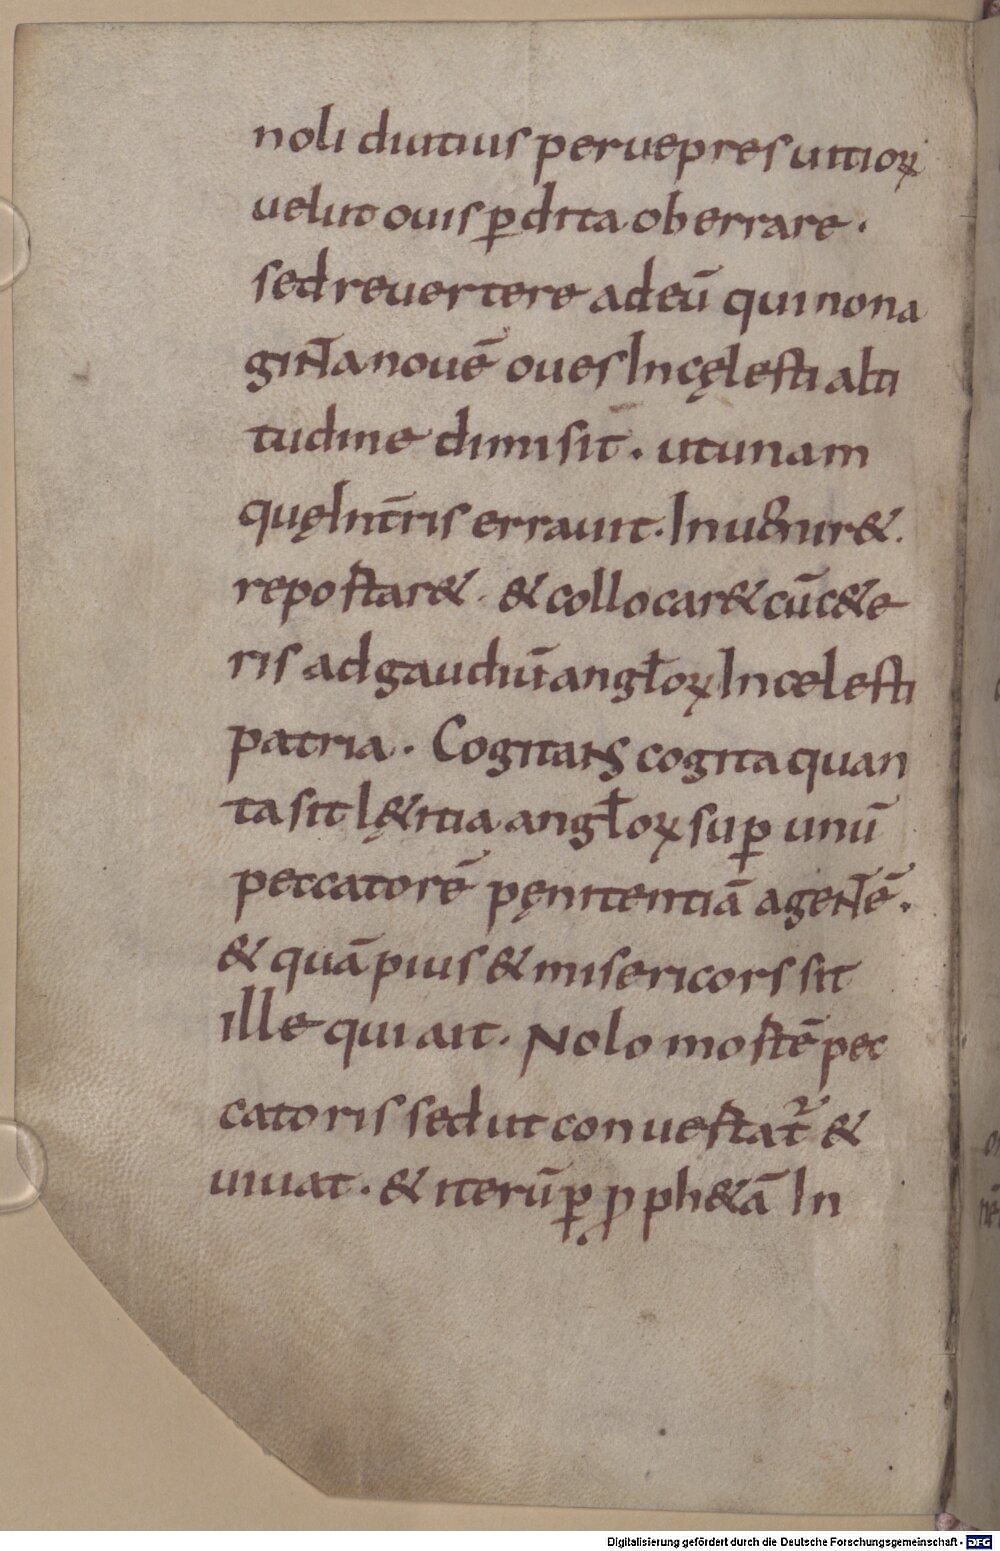 noli diutius per uepres uitioꝝ
uelut ouis ꝑdita oberrare.
sed reuertere ad eū qui nona
ginta nouē oues In cęlesti alti
tudine dimisit. ut unam
quę In tr̄is errauit. Inuenir&.
reportar&. & collocar& cū c&e
ris ad gaudiū angl̄oꝝ In celesti
patria. Cogitans cogita quan
ta sit lę&itia angl̄oꝝ suꝑ unū
peccatorē pęnitentiā agentē.
& quā pius & misericors sit
ille qui ait. Nolo mortē pec
catoris sed ut conuertat᷑ &
uiuat. & iterū ꝑ ꝓph&ā In
Digitalisierung gefördert durch die Deutsche Forschungsgemeinschaft - DFG